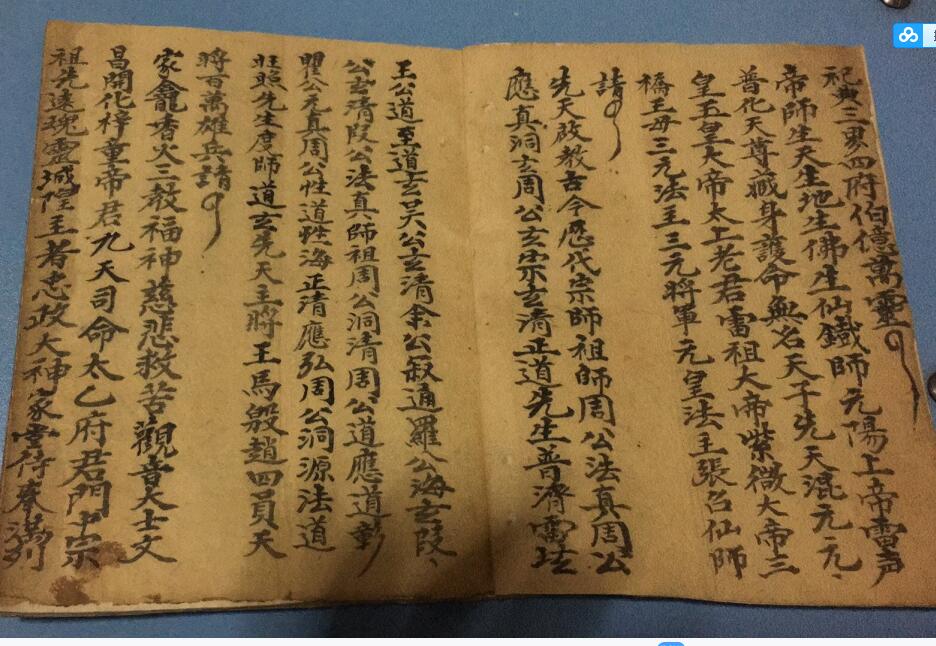 祀典三界四府伯億萬靈
帝師生天生地生佛生仙鐵師元陽上帝雷声
普化天尊藏身護命無名天子先天混元元
皇玉皇大帝太上老君雷祖大帝紫微大帝三
橋王母三元法主三元將軍元皇法主張召仙師
請
先天啟教古今歷代宗師祖師周公法真周公
應真洞玄周公玄宗玄清正道先生普濟雷坛
王公道至道玄吴公玄清余公叙通羅公海玄陵
公玄清段公法真師祖周公洞清周公道應道彰
瞿公元真周公性道性海正清應弘周公洞源法道
旺照先生度師道玄先天主將王馬殷趙四員天
將百萬雄兵請
家龕香火三教福神慈悲救苦觀音大士文
昌開化梓童帝君九天司命太乙府君門中宗
祖先遠魂靈城隍王者忠政大神家堂侍奉滿列